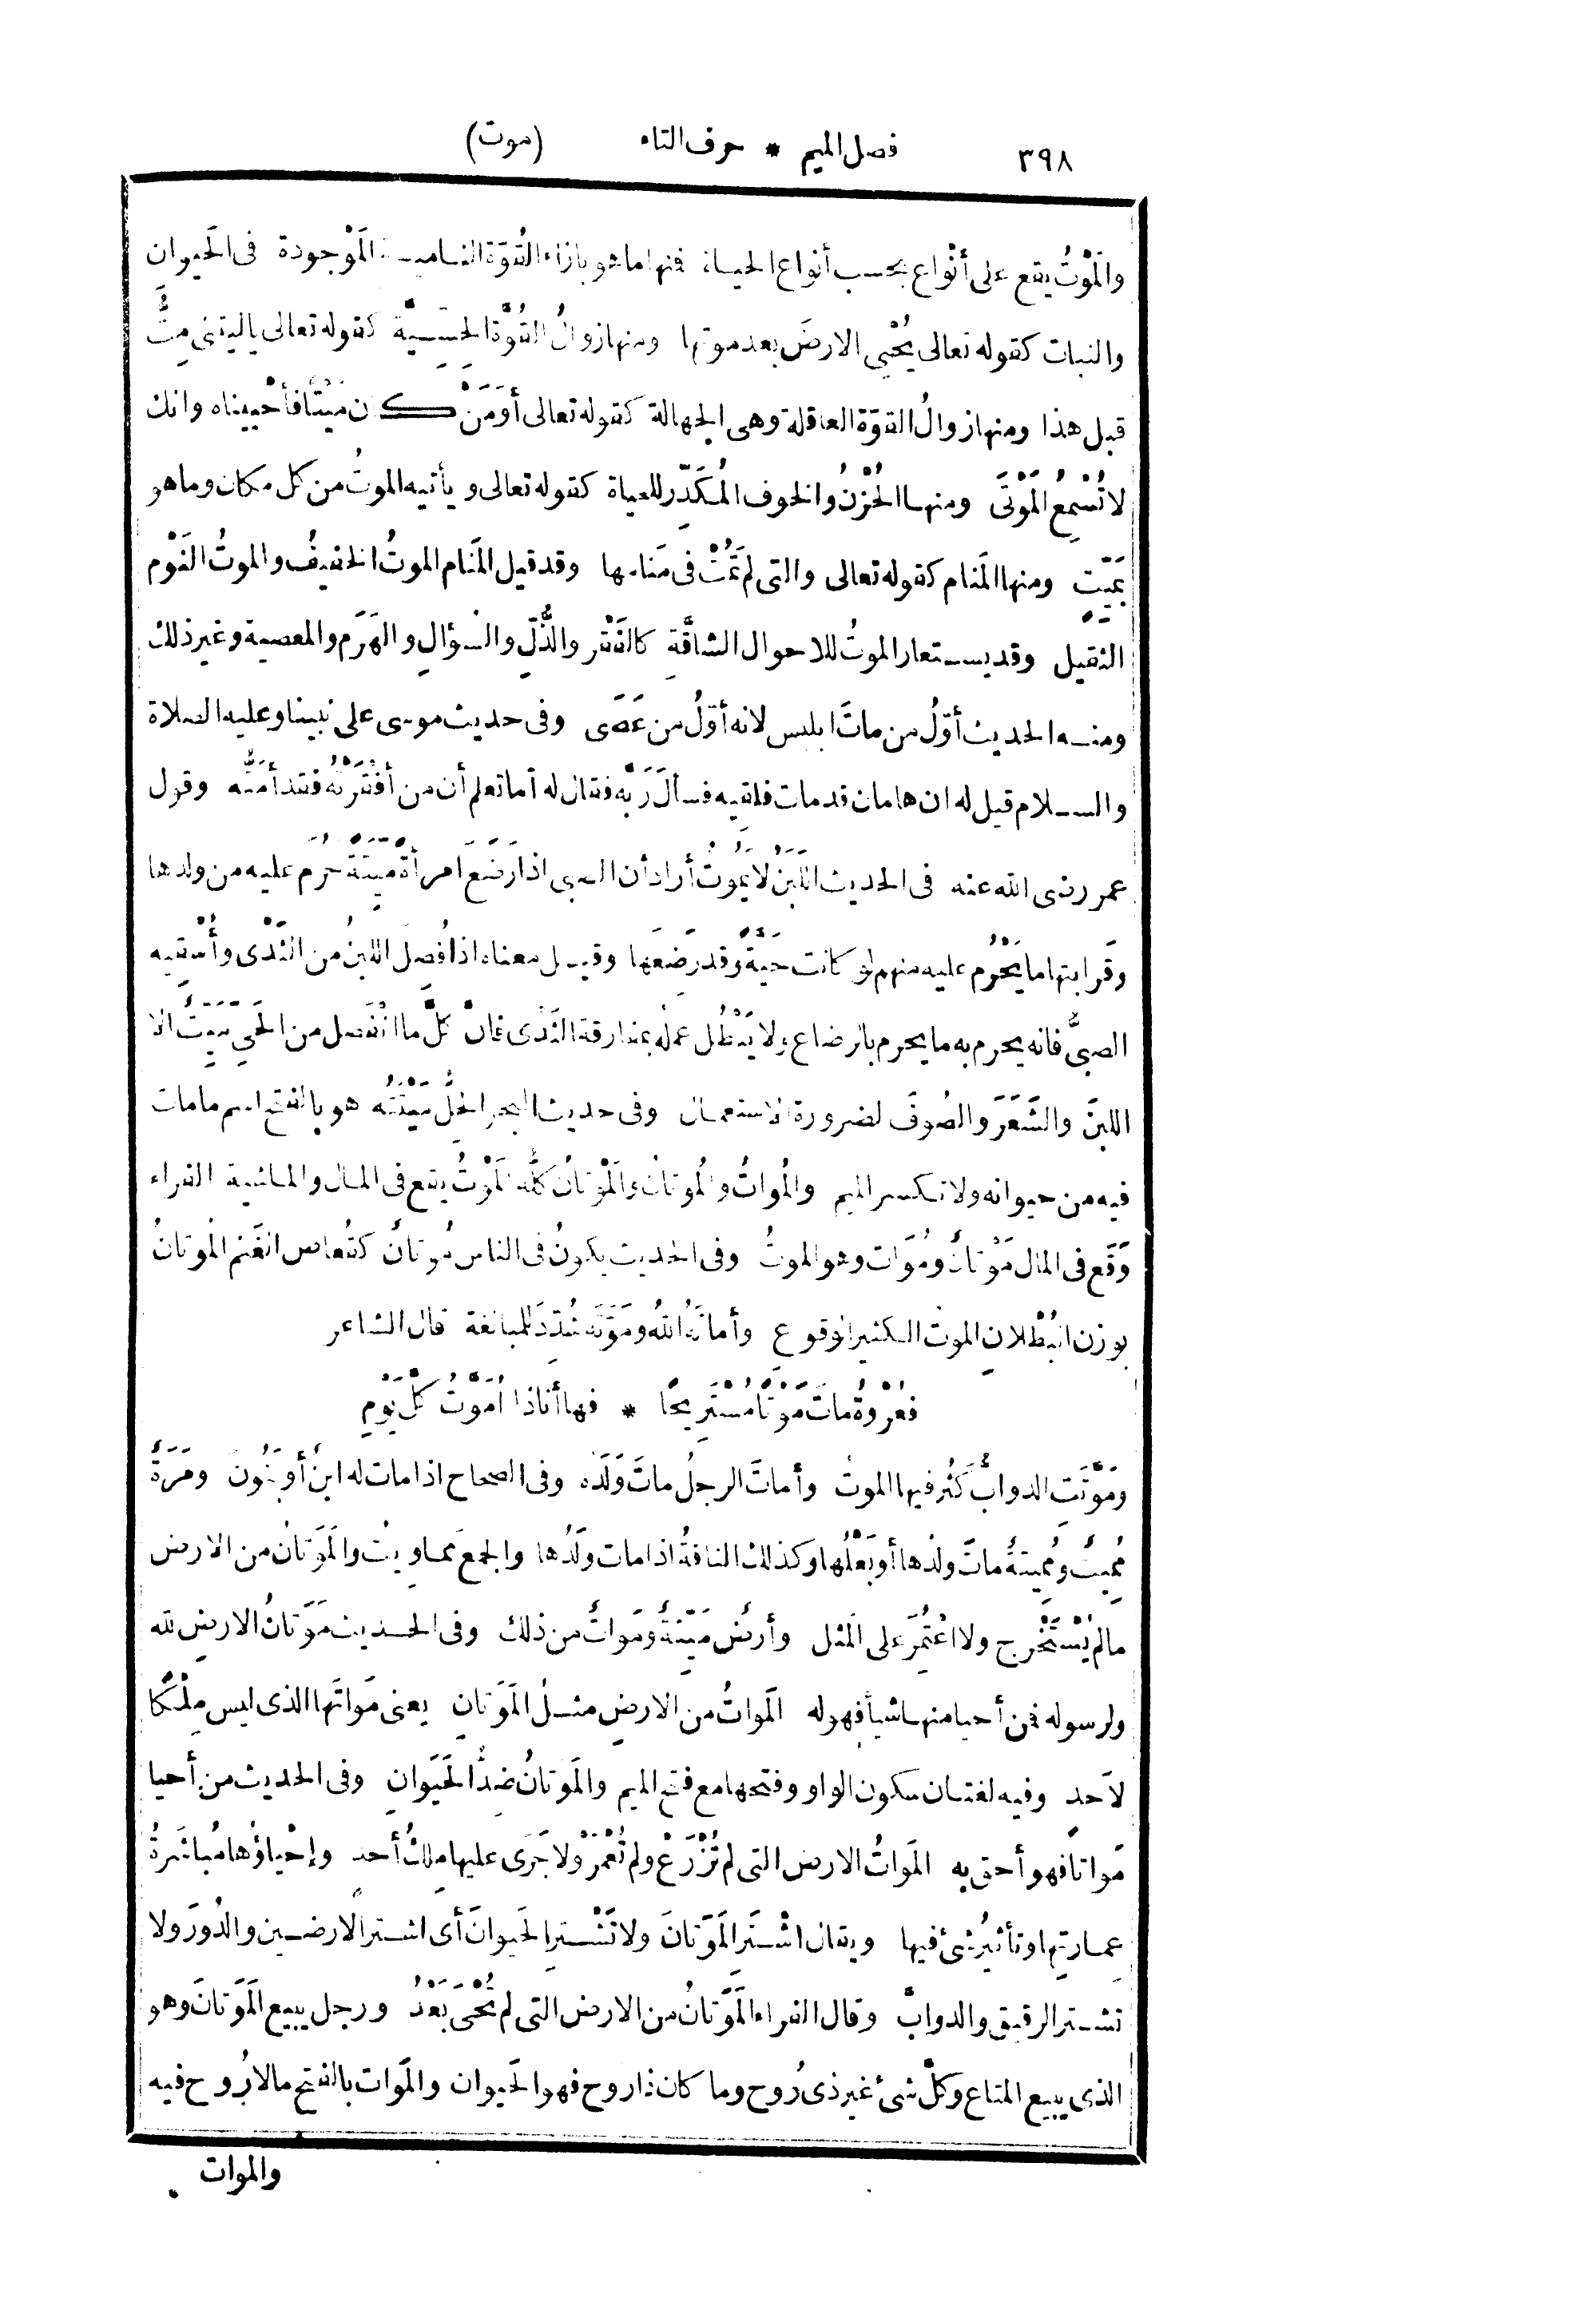 ٣٩٨ فصل الميم * حرف التاء (موت)
والمَوْتُ يقع على أنْواع بحسب أنواع الحياة فمنها ما هو بازاء القُوّة النامية المَوْجودة فى الحَيوان
والنبات كقوله تعالى يُحْيِى الارضَ بعد موتها ومنها زوالُ القُوَّة الحِسِّيَّة كقوله تعالى ياليتنى مِتُّ
قبل هذا ومنها زوالُ القوّة العاقلة وهى الجهالة كقوله تعالى أَوَمَنْ كان مَيْتًا فأحْييناه وانك
لا تُسْمِعُ المَوْتَى ومنها الحُزْنُ والخوف المُكَدِّر للحياة كقوله تعالى ويأتيه الموتُ من كل مكان وما هو
بمَيّتٍ ومنها المَنام كقوله تعالى والتى لم تَمُتْ فى مَنامها وقد قيل المَنام الموتُ الخفيفُ والموتُ النَوْم
الثقيل وقد يستعار الموتُ للاحوال الشاقَّةِ كالفَقْر والذُّلِّ والسُّؤالِ والهَرَم والمعصية وغير ذلك
ومنه الحديث أوّلُ من ماتَ ابليس لانه أوّلُ من عَصَى وفى حديث موسى على نبينا وعليه الصلاة
والسلام قيل له ان هامان قد مات فلقيه فسأل رَبَّه فقال له أما تعلم أن من أفْقَرْتُه فقد أَمَتُّه وقول
عمر رضى الله عنه فى الحديث اللَبَنُ لا يَمُوتُ أراد أن الصبى اذا رَضَعَ امرأةً مَيّتَةً حَرُم عليه من ولدها
وقَرابتها ما يَحْرُم عليه منهم لو كانت حَيَّةً وقد رَضِعَها وقيل معناه اذا فُصِلَ اللبنُ من الثَدْى وأُسْقِيه
الصبىُّ فانه يحرم به ما يحرم بالرضاع ولا يَبْطُل عملُه بمفارقة الثَدْى فانّ كلَّ ما انْفَصل من الحَيِّ مَيّتٌ الا
اللبنَ والشَعَرَ والصُوفَ لضرورة الاستعمال وفى حديث البحر الحِلُّ مَيْتَتُه هو بالفتح اسم ما مات
فيه من حيوانه ولا تكسر الميم والمُواتُ والمُوتانُ والمَوْتانُ كلُّه المَوْتُ يقع فى المال والماشية الفراء
وَقَع فى المال مَوْتانٌ ومُوَات وهو الموتُ وفى الحديث يكونُ فى الناس مُوتانٌ كقُعاص الغَنم المُوتانُ
بوزن البُطْلانِ الموتُ الكثير الوقوع وأماتَه اللهُ ومَوَّتَه شُدِّدَ للمبالغة قال الشاعر
فعُرْوةُ ماتَ مَوْتًا مُسْتَرِيحًا * فها أنا ذا أُمَوَّتُ كلَّ يَوْمِ
ومَوَّتَتِ الدوابُّ كَثُر فيها الموتُ وأماتَ الرجلُ ماتَ وَلَدُه وفى الصحاح اذا مات له ابنٌ أو بَنُونَ ومَرَةٌ
مُمِيتٌ ومُمِيتةٌ ماتَ ولدُها أو بَعْلُها وكذلك الناقةُ اذا مات ولَدُها والجمع مَمَاوِيتُ والمَوَتانُ من الارض
مالم يُسْتَخْرج ولا اعْتُمِرَ على المَثل وأرضٌ مَيّتةٌ ومَواتٌ من ذلك وفى الحديث مَوَتانُ الارضِ لله
ولرسوله فمن أحيا منها شيأ فهو له المَواتُ من الارضِ مثلُ المَوَتانِ يعنى مَواتَها الذى ليس مِلْكًا
لاَحدٍ وفيه لغتان سكون الواو وفتحها مع فتح الميم والمَوَتانُ ضِدُّ الحَيَوانِ وفى الحديث من أحيا
مَواتًا فهو أحق به المَواتُ الارض التى لم تُزْرَعْ ولم تُعْمَرْ ولا جَرَى عليها مِلكُ أحدٍ وإحْياؤُها مُباشَرةُ
عِمارتِها وتأثيرُ شئ فيها ويقال اشْتَرِ المَوَتانَ ولا تَشْتَرِ الحَيوانَ أى اشتر الارضين والدُورَ ولا
تشتر الرقيق والدوابَّ وقال الفراء المَوَتانُ من الارض التى لم تُحْىَ بَعْدُ ورجل يبيع المَوَتانَ وهو
الذى يبيع المتاع وكلَّ شئ غير ذى رُوح وما كان ذا روح فهو الحَيوان والمَوات بالفتح مالا رُوح فيه
والموات